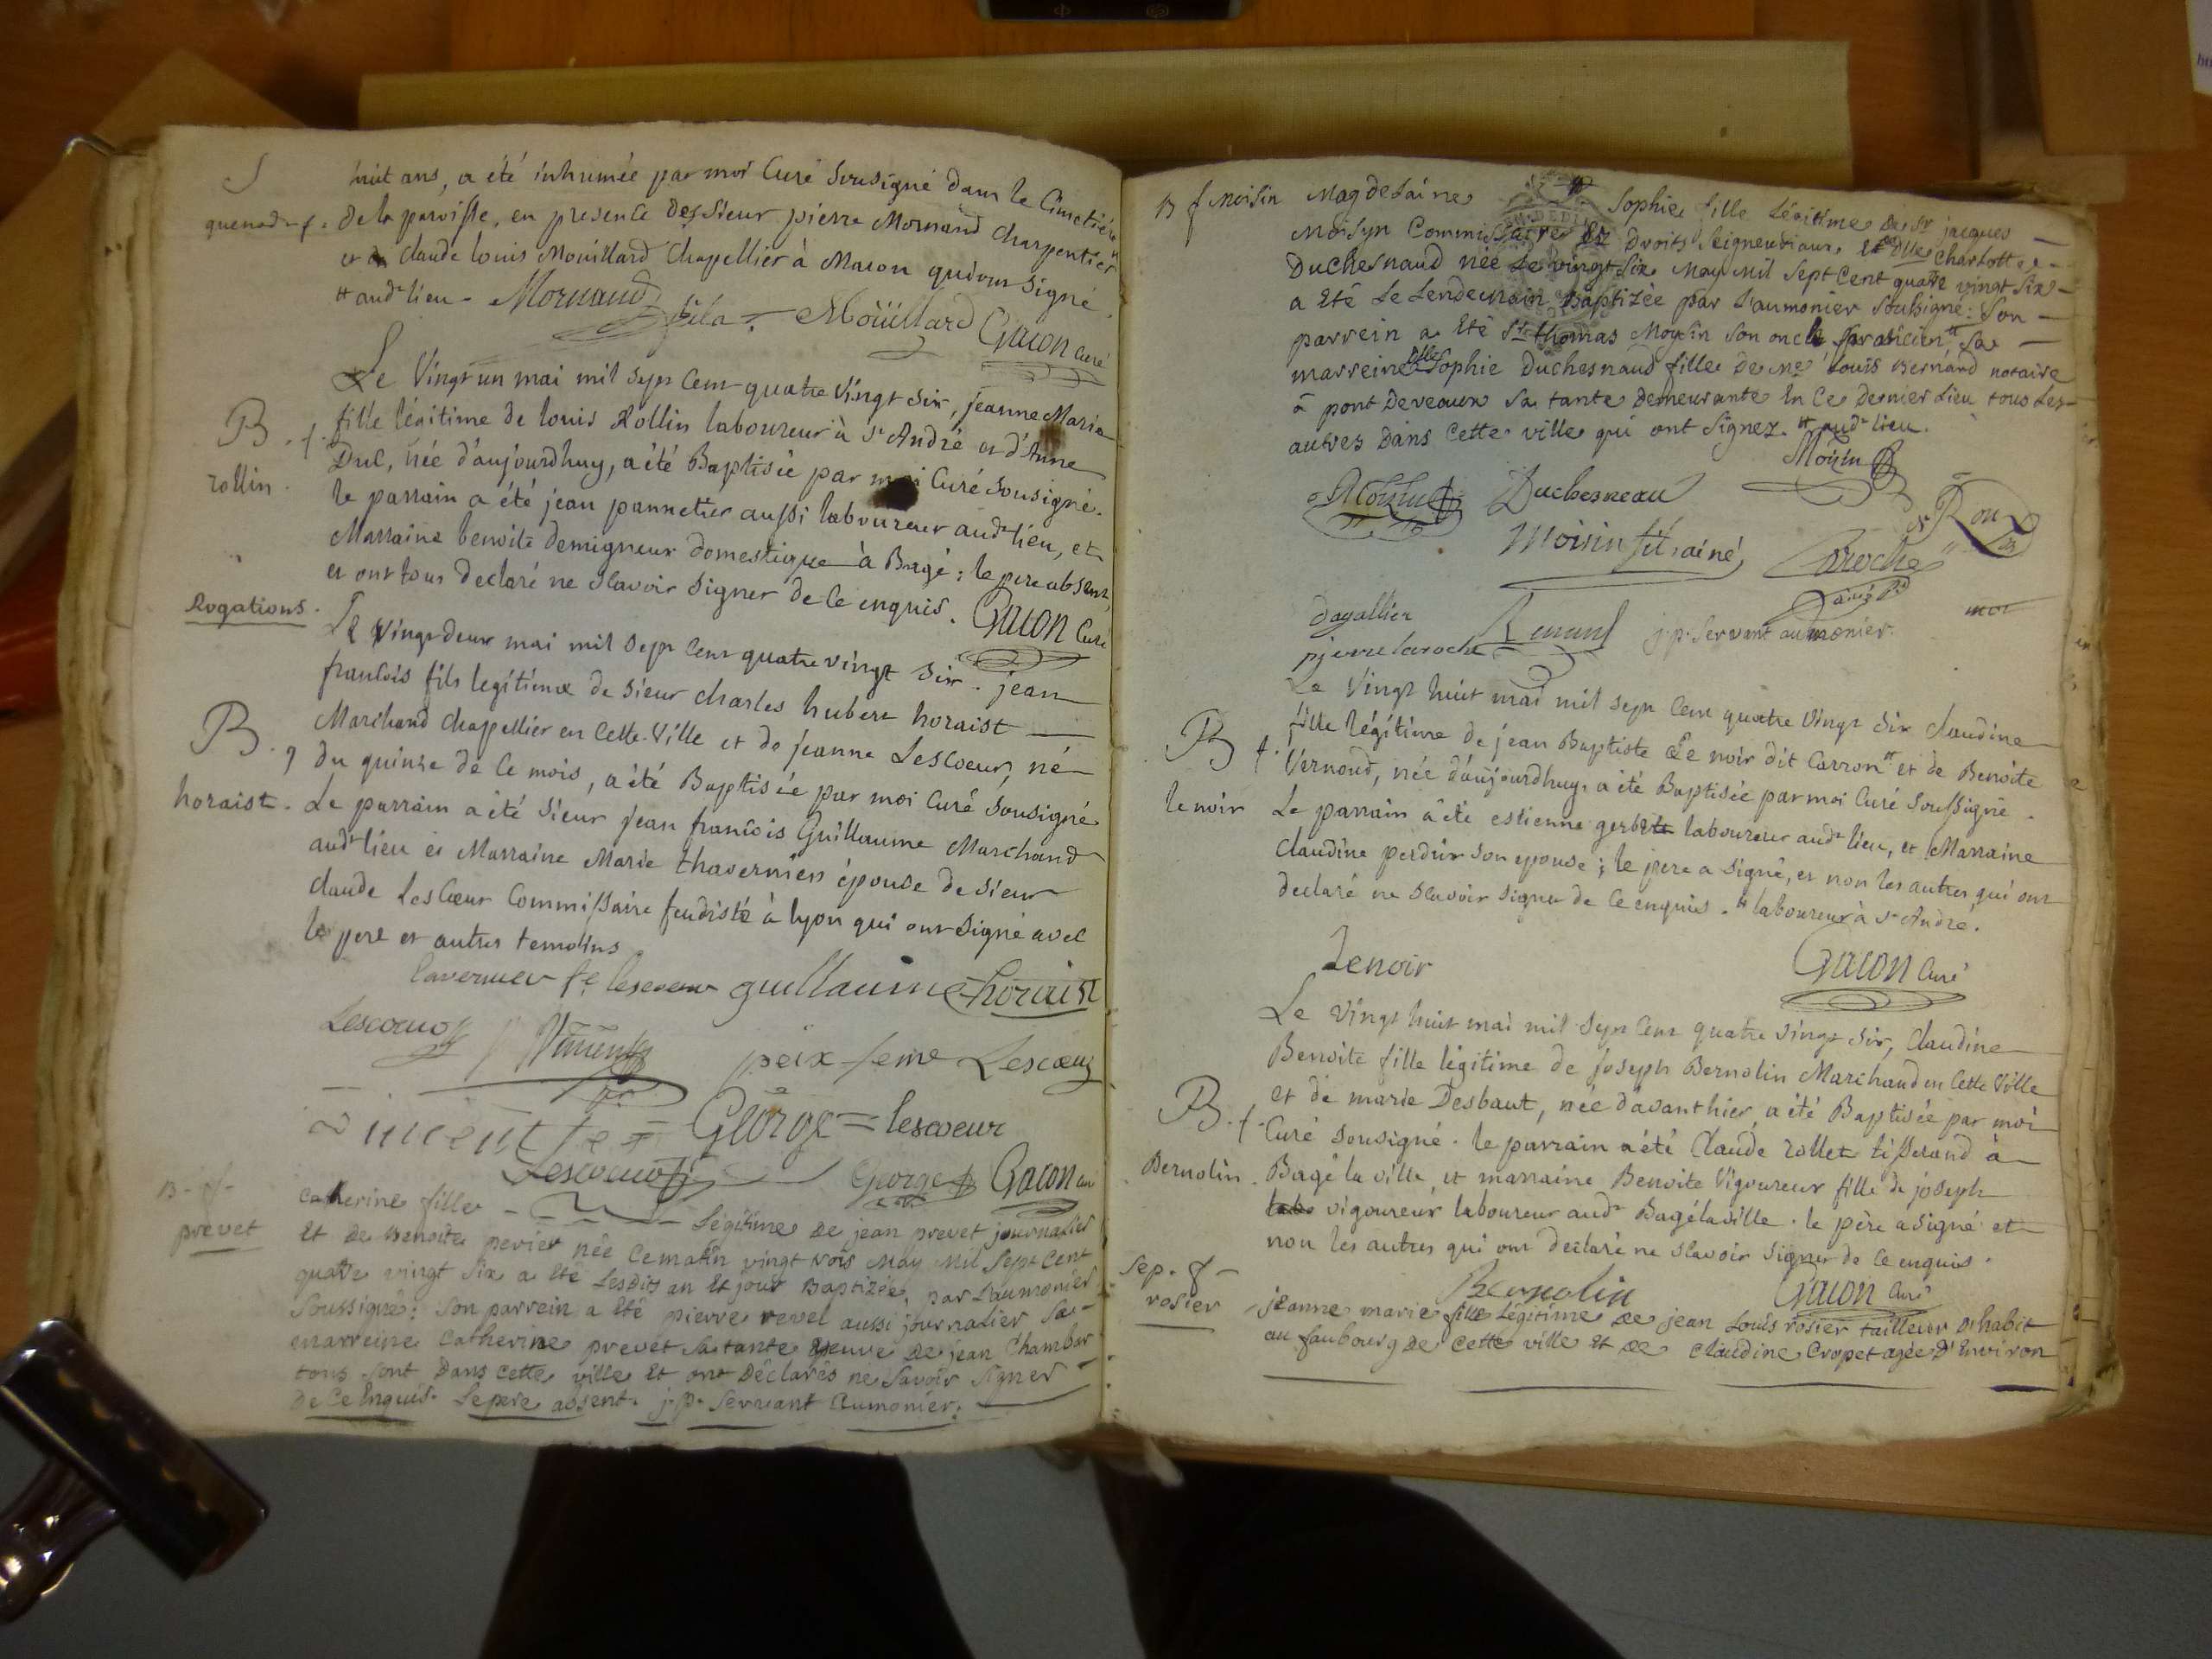 S
huit ans, a été inhumée par moi Curé Sousigné dans le Cimetiére
quenad - f.
de la paroisse, en presence des Sieur pierre Mornand Charpentier
et claude louis Mouillard Chapellier à Macon qui ont Signé.
tt aud.t lieu - Mornand Moüillard Gacon Curé
Le Vingt un mai mil Sept Cent quatre Vingt Six, jeanne Marie
B. f.
rollin.
fille légitime de louis Rollin laboureur à St André et d'Anne
Duc, née d'aujourdhuy, a été Baptisée par moi Curé Sousigné.
le parrain a été jean pannetier aussi laboureur aud.t lieu, et
Marraine benoite demigneur domestique à Bagé ; le pere absent,
et ont tous declaré ne Scavoir Signer de Ce enquis. Gacon Curé
Rogations.
Le Vingt deux mai mil Sept Cent quatre vingt Six. jean
francois fils legitime de Sieur charles hubert horaist
B. g
horaist.
Marchand Chapellier en Cette Ville et de jeanne LesCoeur, né
du quinze de Ce mois, a été Baptisée par moi Curé Sousigné
Le parrain a été Sieur jean francois Guillaume Marchand
aud.t lieu et Marraine Marie thavernier épouse de Sieur
claude LesCœur Commissaire feudiste à lyon qui ont Signé avec
le pere et autres temoins
tavernier fe lescoeur guillaume horaist
Lescoeur
peix feme Lescœur
George = lescoeur
Lescoeur George Gacon curé
B - f -
prevet
Catherine fille - Légitime De jean prevet journallier
Et de Benoite perier née Cematin vingt trois May Mil Sept Cent
quatre vingt Six a Eté Lesdits an Et jour Baptizée, par L'aumonier
Soussigné : Son parrein a Eté pierre revel aussi journalier Sa -
marreine Catherine prevet Sa tante veuve De jean Chambar
tous Sont Dans cette ville Et ont Déclarés ne Savoir Signer
de Ce Enquis. Le pere absent. j. p. Servant Aumonier.
B f Moisin
Magdelaine Sophie fille Légitime De Sr jacques
Moisyn Commissaire Es Droits Seigneuriaux Et De Dlle Charlotte
Duchesnaud née Le vingt Six May Mil Sept Cent quatre vingt Six
a Eté Le Lendemain Baptizée par L'aumonier Soussigné : Son
parrein a Eté Sr thomas Moysin Son oncle praticien tt Sa
marreine Dlle Sophie Duchesnaud fille De Me Louis Bernard notaire
à pont Deveaux Sa tante Demeurante En Ce Dernier Lieu tous Les
autres Dans Cette ville qui ont Signez. tt aud.t lieu.
Moyzin
Moyzin Duchesneau
Moisin fils ainé Laroche
Dagallier
pierre laroche Renaud j. p. Servant aumonier.
Le Vingt huit mai mil Sept Cent quatre Vingt Six claudine
B f.
le noir
fille légitime de jean Baptiste Le noir dit Carron tt et de Benoite
Vernoud, née d'aujourdhuy, a été Baptisée par moi Curé Soussigné.
Le parrain a été estienne gerbet laboureur aud.t lieu, et Marraine
claudine perdrix Son epouse ; le pere a Signé, et non les autres qui ont
declaré ne Scavoir Signer de Ce enquis. tt laboureur à St André.
Lenoir Gacon Curé
Le Vingt huit mai mil Sept Cent quatre Vingt Six, Claudine
Benoite fille légitime de joseph Bernolin Marchand en Cette Ville
B. f.
Bernolin.
et de marie Desbaut, née d'avanthier, a été Baptisée par moi
Curé Sousigné. le parrain a été Claude rollet tisserand à
Bagé la ville, et marraine Benoite Vigoureux fille de joseph
vigoureux laboureur aud.t Bagélaville. le père a Signé et
non les autres qui ont declaré ne Scavoir Signer de Ce enquis.
Bernolin Gacon Curé
Sep. f -
rosier
jeanne marie fille Légitime De jean Louis rosier tailleur D'habit
au faubourg De Cette ville Et De Claudine Cropet agée D'Environ